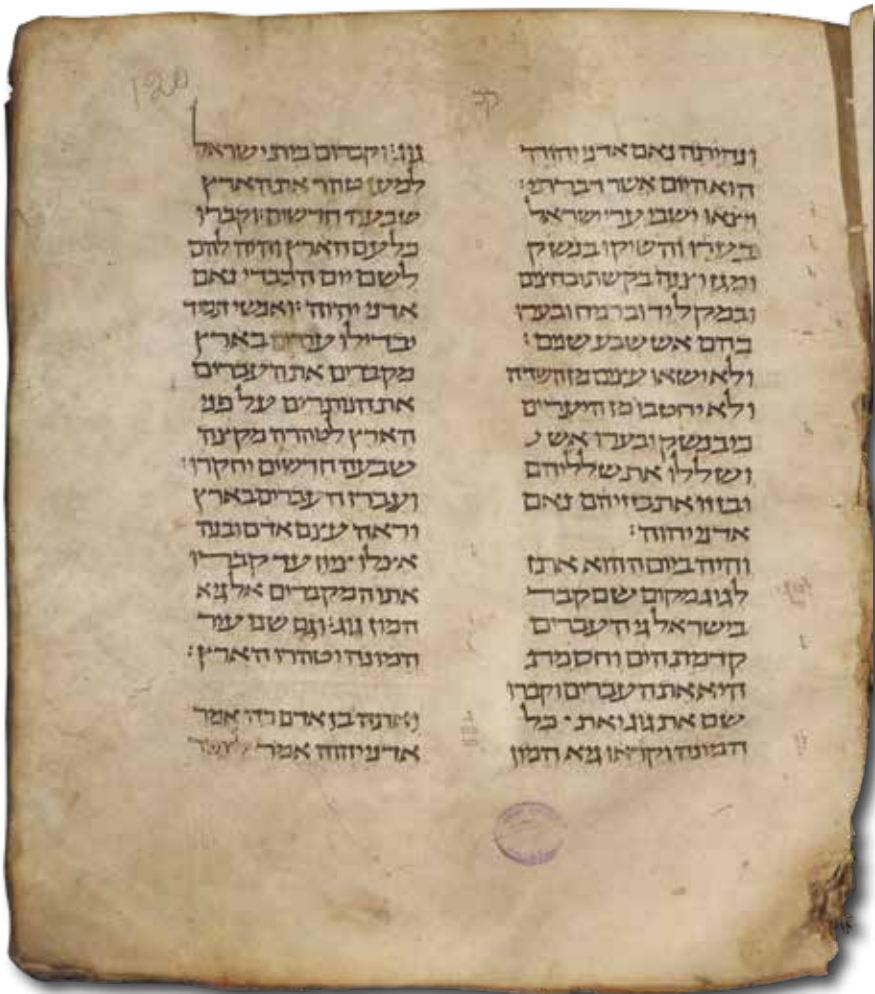 120
קכ
ונהיתה נאם אדני יהוה
הוא היום אשר דברתי :
ויצאו ישבי ערי ישראל
ובערו והשיקו בנשק
ומגן וצנה בקשת ובחצים
ובמקל יד וברמח ובערו
בהם אש שבע שנים :
ולא ישאו עצים מן השדה
ולא יחטבו מן היערים
כי בנשק יבערו אש
ושללו את שלליהם
ובזזו את בזזיהם נאם
אדני יהוה :
והיה ביום ההוא אתן
לגוג מקום שם קבר
בישראל גי העברים
קדמת הים וחסמת
היא את העברים וקברו
שם את גוג ואת כל
המונה וקראו גיא המון
גוג : וקברום בית ישראל
למען טהר את הארץ
שבעה חדשים : וקברו
כל עם הארץ והיה להם
לשם יום הכבדי נאם
אדני יהוה : ואנשי תמיד
יבדילו עברים בארץ
מקברים את העברים
את הנותרים על פני
הארץ לטהרה מקצה
שבעה חדשים יחקרו :
ועברו העברים בארץ
וראה עצם אדם ובנה
אצלו ציון עד קברו
אתו המקברים אל גיא
המון גוג : וגם שם עיר
המונה וטהרו הארץ :
ואתה בן אדם כה אמר
אדני יהוה אמר לצפור